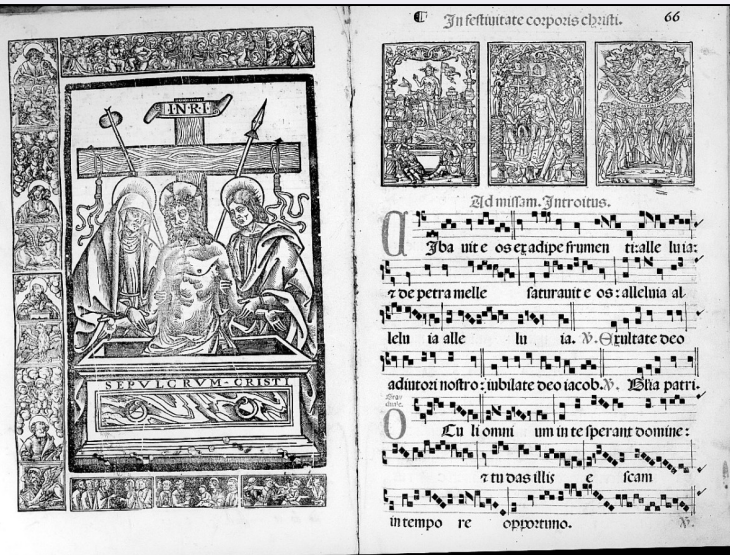 I·N·R·I
SEPVLCRVM·CRISTI
In festiuitate corporis christi.
66
Ad missam. Introitus.
Ciba uit e os ex adipe frumen ti: alle lu ia:
⁊ de petra melle saturauit e os: alleluia al
lelu ia alle lu ia. V. Exultate deo
adiutori nostro: iubilate deo iacob. V. Glia patri.
Gra
duale.
OCu li omni um in te sperant domine:
⁊ tu das illis e scam
in tempo re opportuno. V.